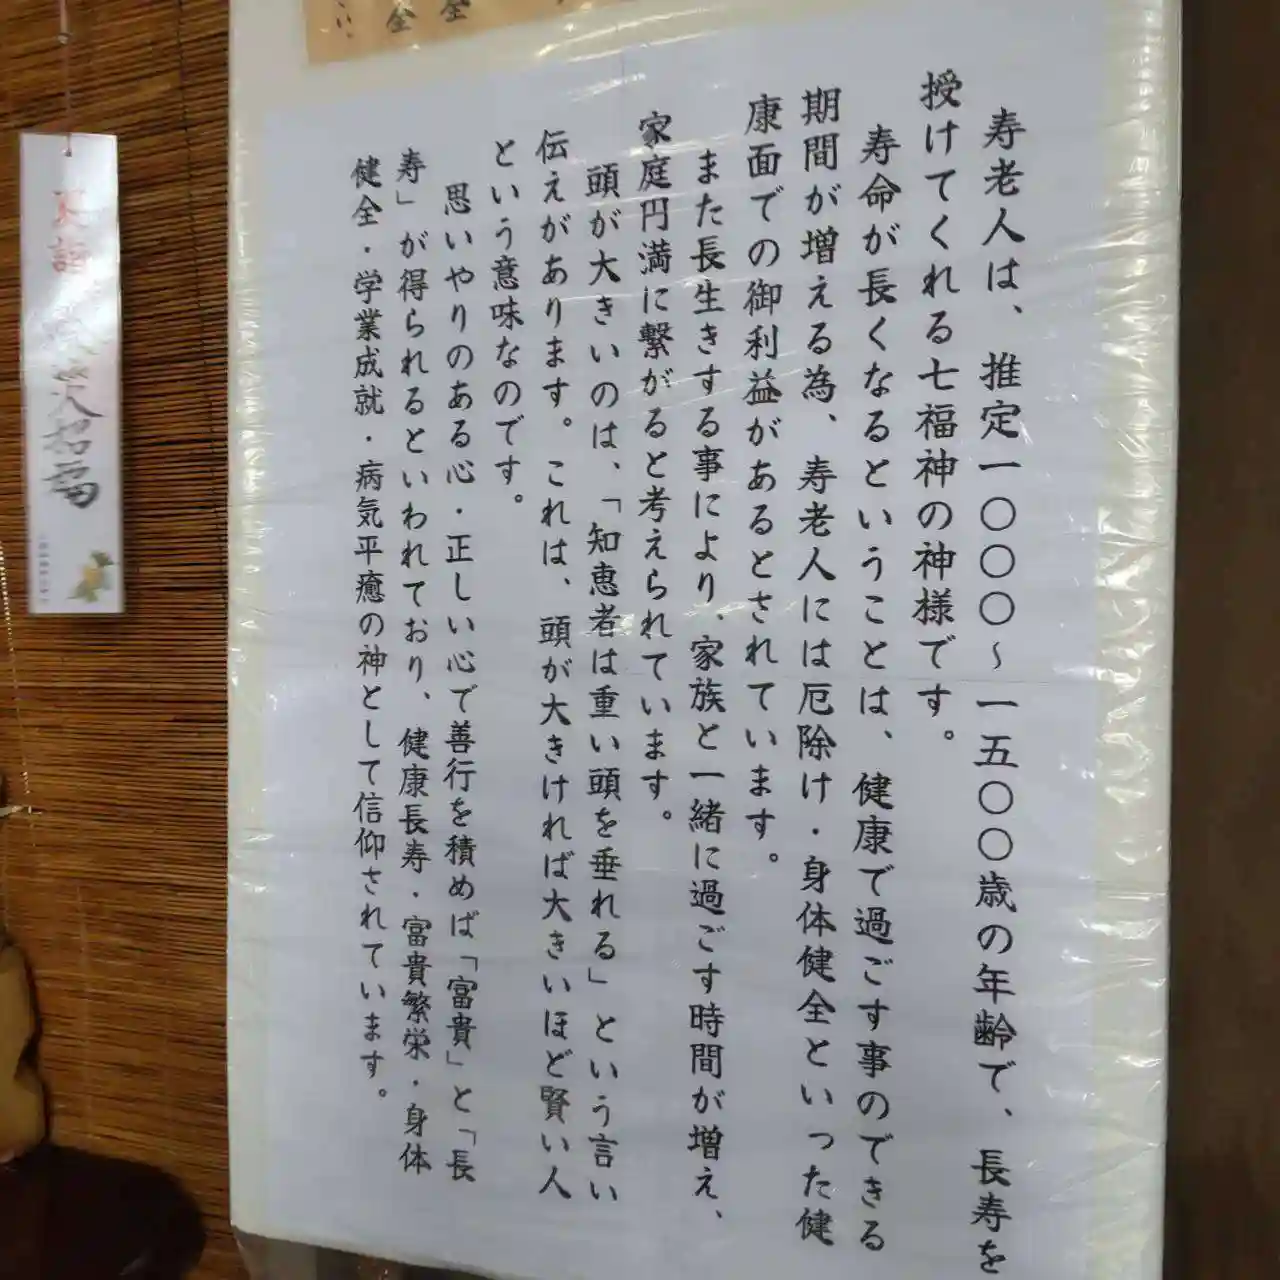 寿老人は、推定一〇〇〇～一五〇〇歳の年齢で、長寿を
授けてくれる七福神の神様です。
寿命が長くなるということは、健康で過ごす事のできる
期間が増える為、寿老人には厄除け・身体健全といった健
康面での御利益があるとされています。
また長生きする事により、家族と一緒に過ごす時間が増え、
家庭円満に繋がると考えられています。
頭が大きいのは、「知恵者は重い頭を垂れる」という言い
伝えがあります。これは、頭が大きければ大きいほど賢い人
という意味なのです。
思いやりのある心・正しい心で善行を積めば「富貴」と「長
寿」が得られるといわれており、健康長寿・富貴繁栄・身体
健全・学業成就・病気平癒の神として信仰されています。
全
全